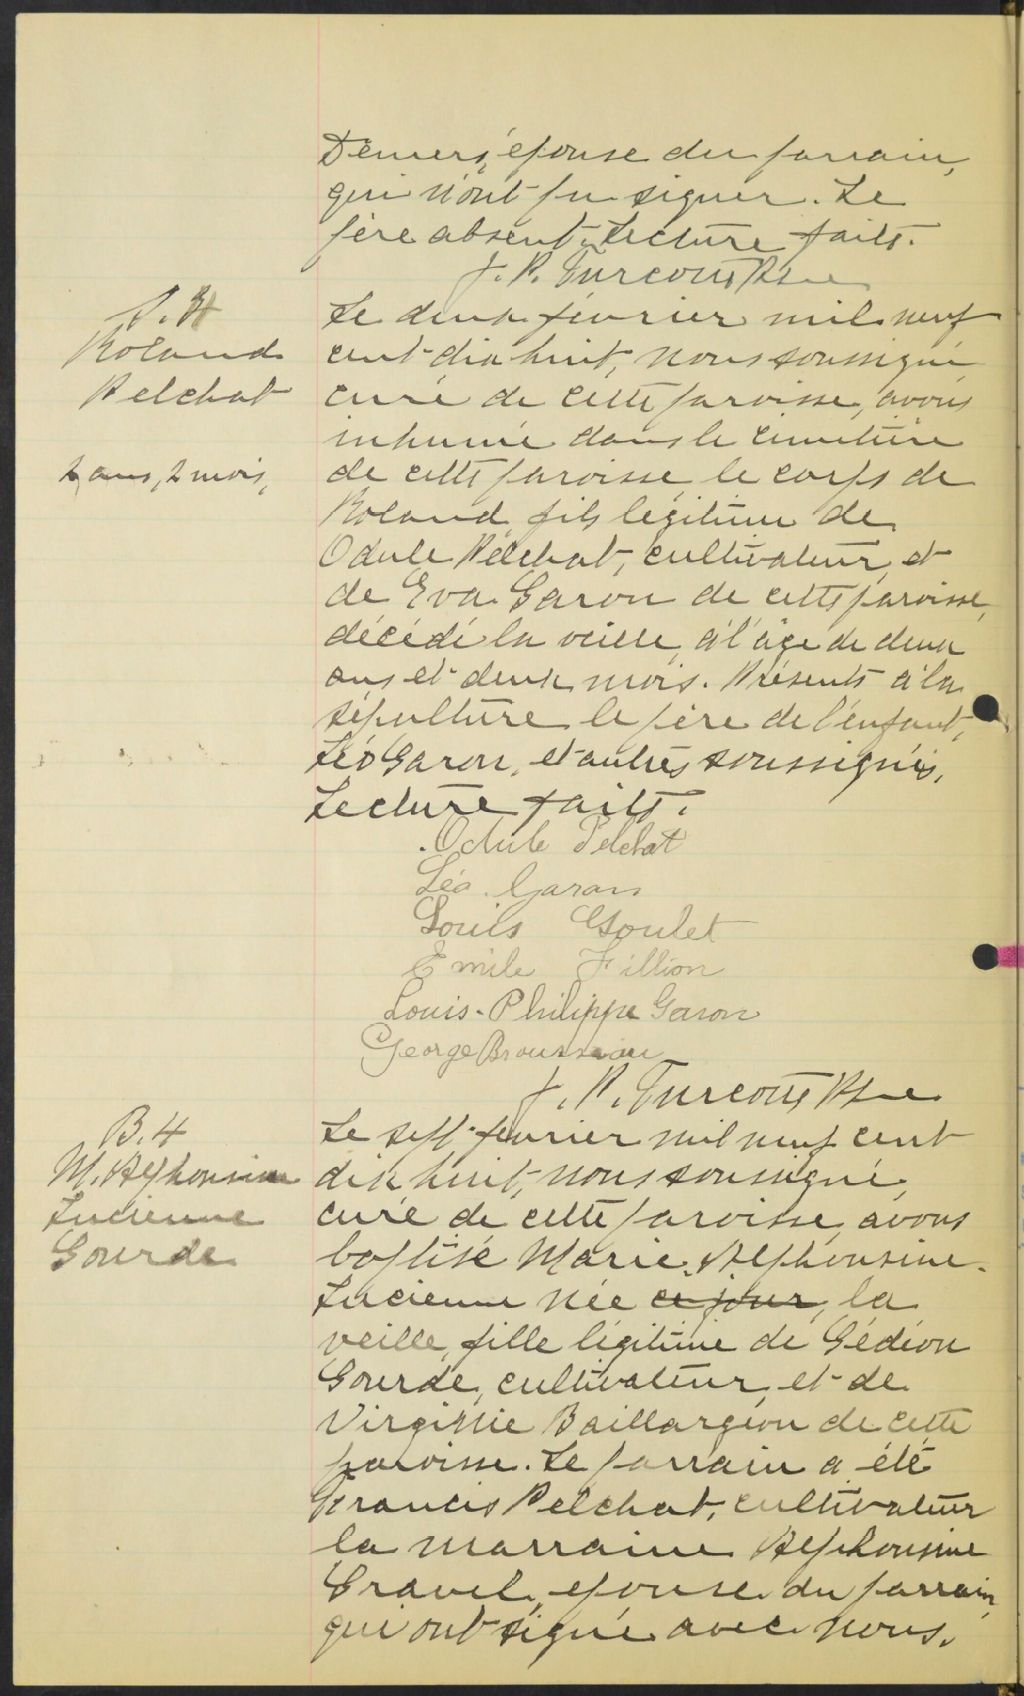 Demers, épouse du parrain,
qui n'ont pu signer. Le
père absent. Lecture faite.
J. P. Turcotte Ptre
S. 4
Roland
Pelchat
2 ans, 2 mois,
Le deux février mil neuf
cent dix huit, nous soussigné
curé de cette paroisse, avons
inhumé dans le cimetière
de cette paroisse le corps de
Roland, fils légitime de
Odule Pelchat, cultivateur, et
de Eva Garon de cette paroisse,
décédé la veille, à l'âge de deux
ans et deux mois. Présents à la
sépulture le père de l'enfant,
Léo Garon, et autres soussignés,
Lecture faite.
Odule Pelchat
Léo. Garon
Louis Goulet
Emile Fillion
Louis-Philippe Garon
George Brousseau
J. P. Turcotte Ptre
B. 4
M. Alphonsine
Lucienne
Gourde
Le sept février mil neuf cent
dix huit, nous soussigné,
curé de cette paroisse, avons
baptisé Marie, Alphonsine.
Lucienne née ce jour, la
veille, fille légitime de Gédéon
Gourde, cultivateur, et de
Virginie Baillargeon de cette
paroisse. Le parrain a été
Francis Pelchat, cultivateur
la marraine Alphonsine
Gravel, épouse du parrain,
qui ont signé avec nous.